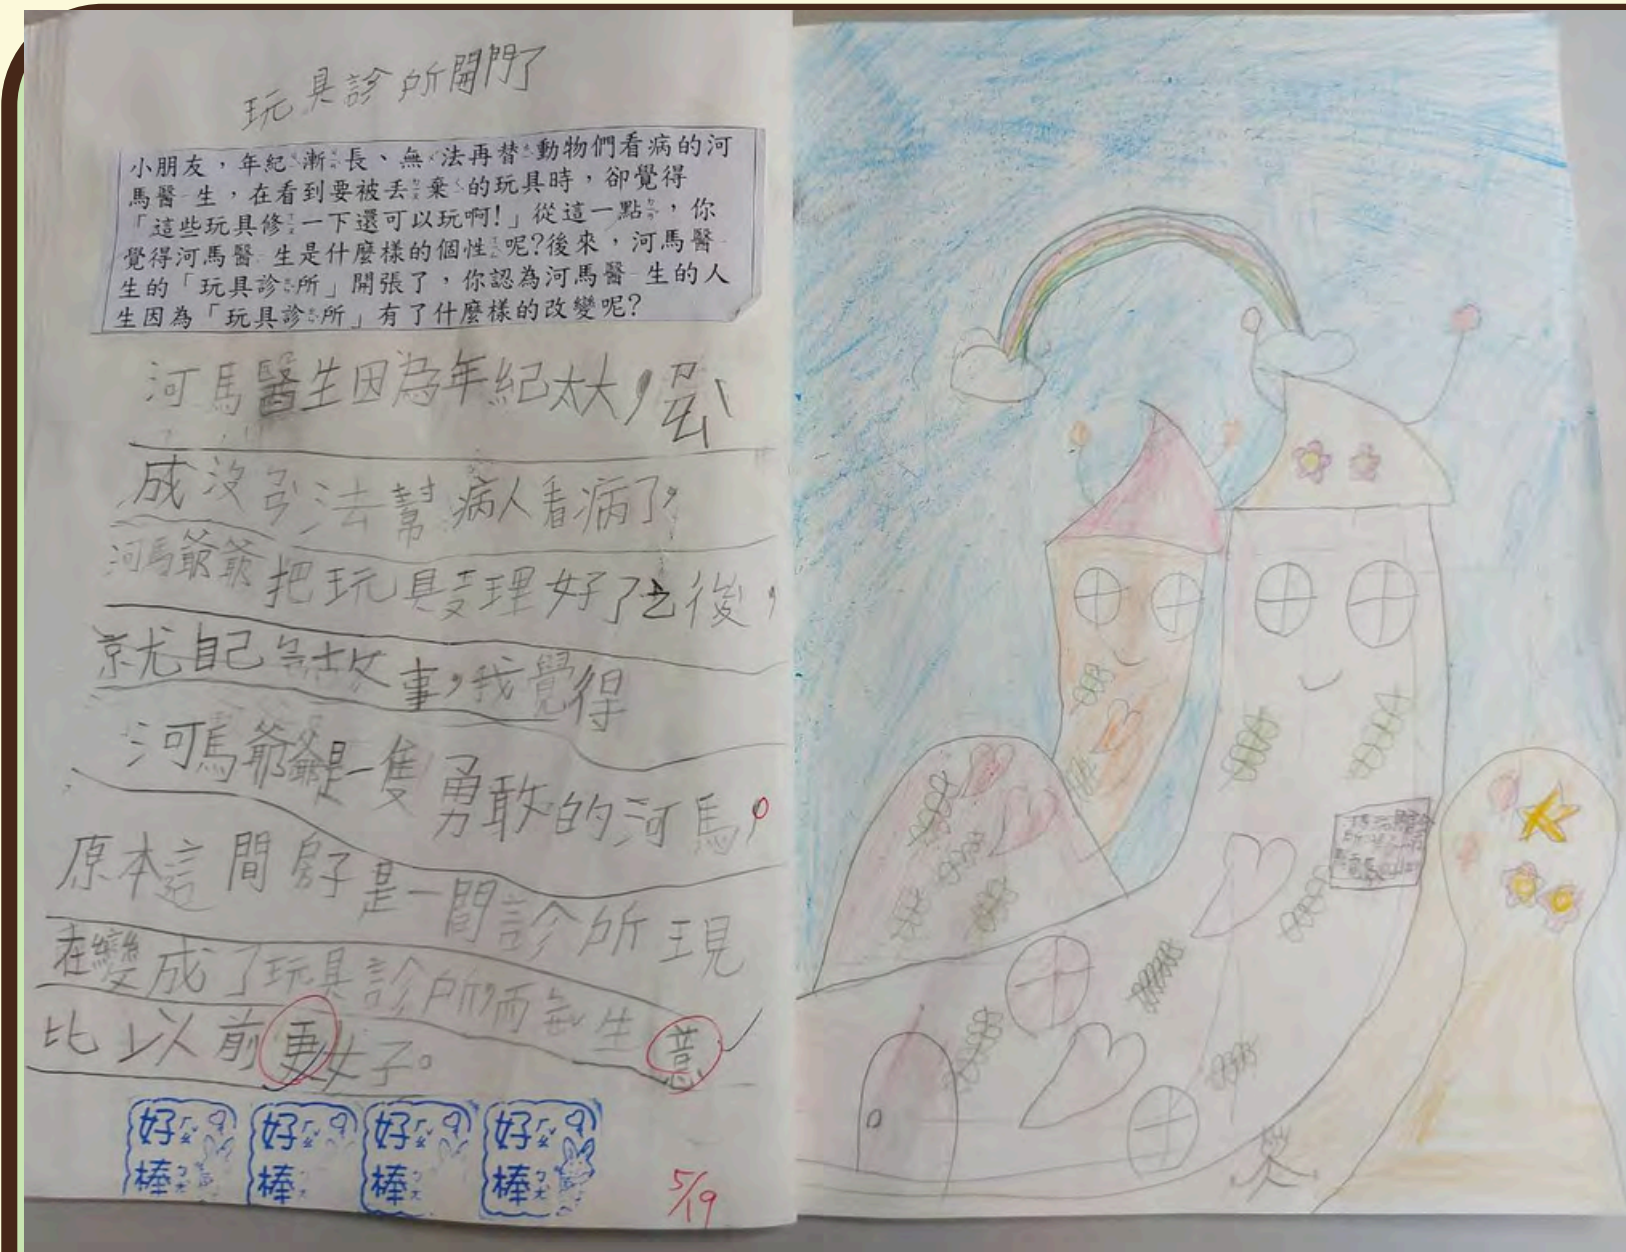 玩具診所開門了
小朋友，年紀漸長、無法再替動物們看病的河
馬醫生，在看到要被丟棄的玩具時，卻覺得
「這些玩具修一下還可以玩啊！」從這一點，你
覺得河馬醫生是什麼樣的個性呢?後來，河馬醫
生的「玩具診所」開張了，你認為河馬醫生的人
生因為「玩具診所」有了什麼樣的改變呢?
河馬醫生因為年紀太大，
成沒 法幫病人看病了，
河馬爺爺把玩具 理好了之後，
就自己 故事，我覺得
河馬爺爺是一隻勇敢的河馬，
原本這間房子是一間診所現
在變成了玩具診所而 生意
比以前更好。
好棒 好棒 好棒 好棒
5/19